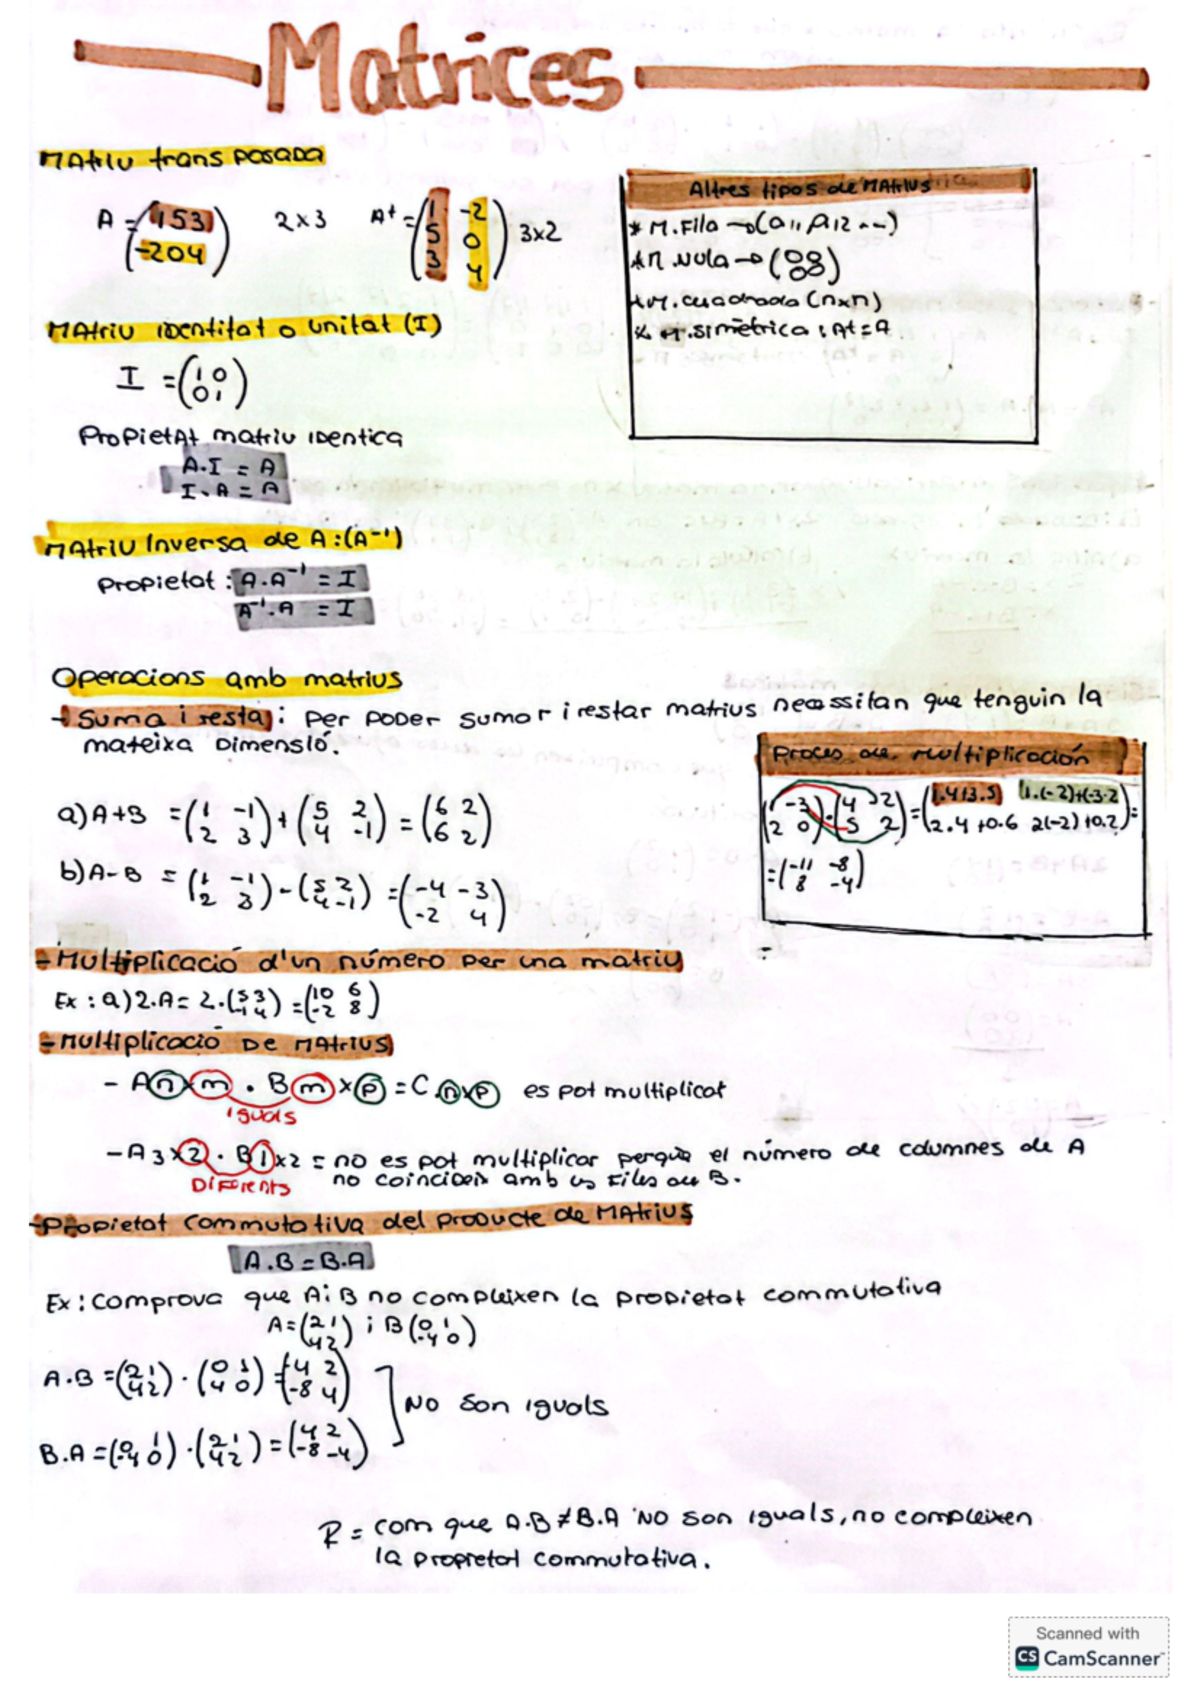 Matrices
MAtriu transposada
A = (1 5 3
-2 0 4) 2x3 At = (1 -2
5 0
3 4) 3x2
Altres tipos de MAtrius
* M.Fila → (a11, a12 ...)
* M.Nula → (00
00)
* M.cuadrada (nxn)
* M.simètrica : At = A
MAtriu identitat o unitat (I)
I = (1 0
0 1)
Propietat matriu identica
A.I = A
I.A = A
MAtriu Inversa de A:(A⁻¹)
Propietat : A.A⁻¹ = I
A⁻¹.A = I
Operacions amb matrius
- Suma i resta : Per poder sumar i restar matrius necessitan que tenguin la
mateixa Dimensió.
a) A+B = (1 -1
2 3) + (5 2
4 -1) = (6 2
6 2)
b) A-B = (1 -1
2 3) - (5 2
4 -1) = (-4 -3
-2 4)
Proces de Multiplicación
(1 -3
2 0) . (4 -2
5 2) = (1.4+3.5 1.(-2)+(-3.2
2.4+0.6 2(-2)+0.2) =
= (-11 -8
8 -4)
- Multiplicació d'un número per una matriu
Ex : a) 2.A = 2.(5 3
-1 4) = (10 6
-2 8)
- Multiplicació De MAtrius
- A n x m . B m x p = C n x p es pot multiplicat
iguals
- A 3x2 . B 1x2 = no es pot multiplicar perquè el número de columnes de A
DiFerents no coincideix amb es Files de B.
- Propietat commutativa del producte de MAtrius
A.B = B.A
Ex : Comprova que A i B no compleixen la propietat commutativa
A = (2 1
4 2) i B (0 1
-4 0)
A.B = (2 1
4 2) . (0 1
4 0) = (-4 2
-8 4)
No son iguals
B.A = (0 1
-4 0) . (2 1
4 2) = (4 2
-8 -4)
R = com que A.B ≠ B.A No son iguals, no compleixen
la propietat commutativa.
Scanned with
CS CamScanner